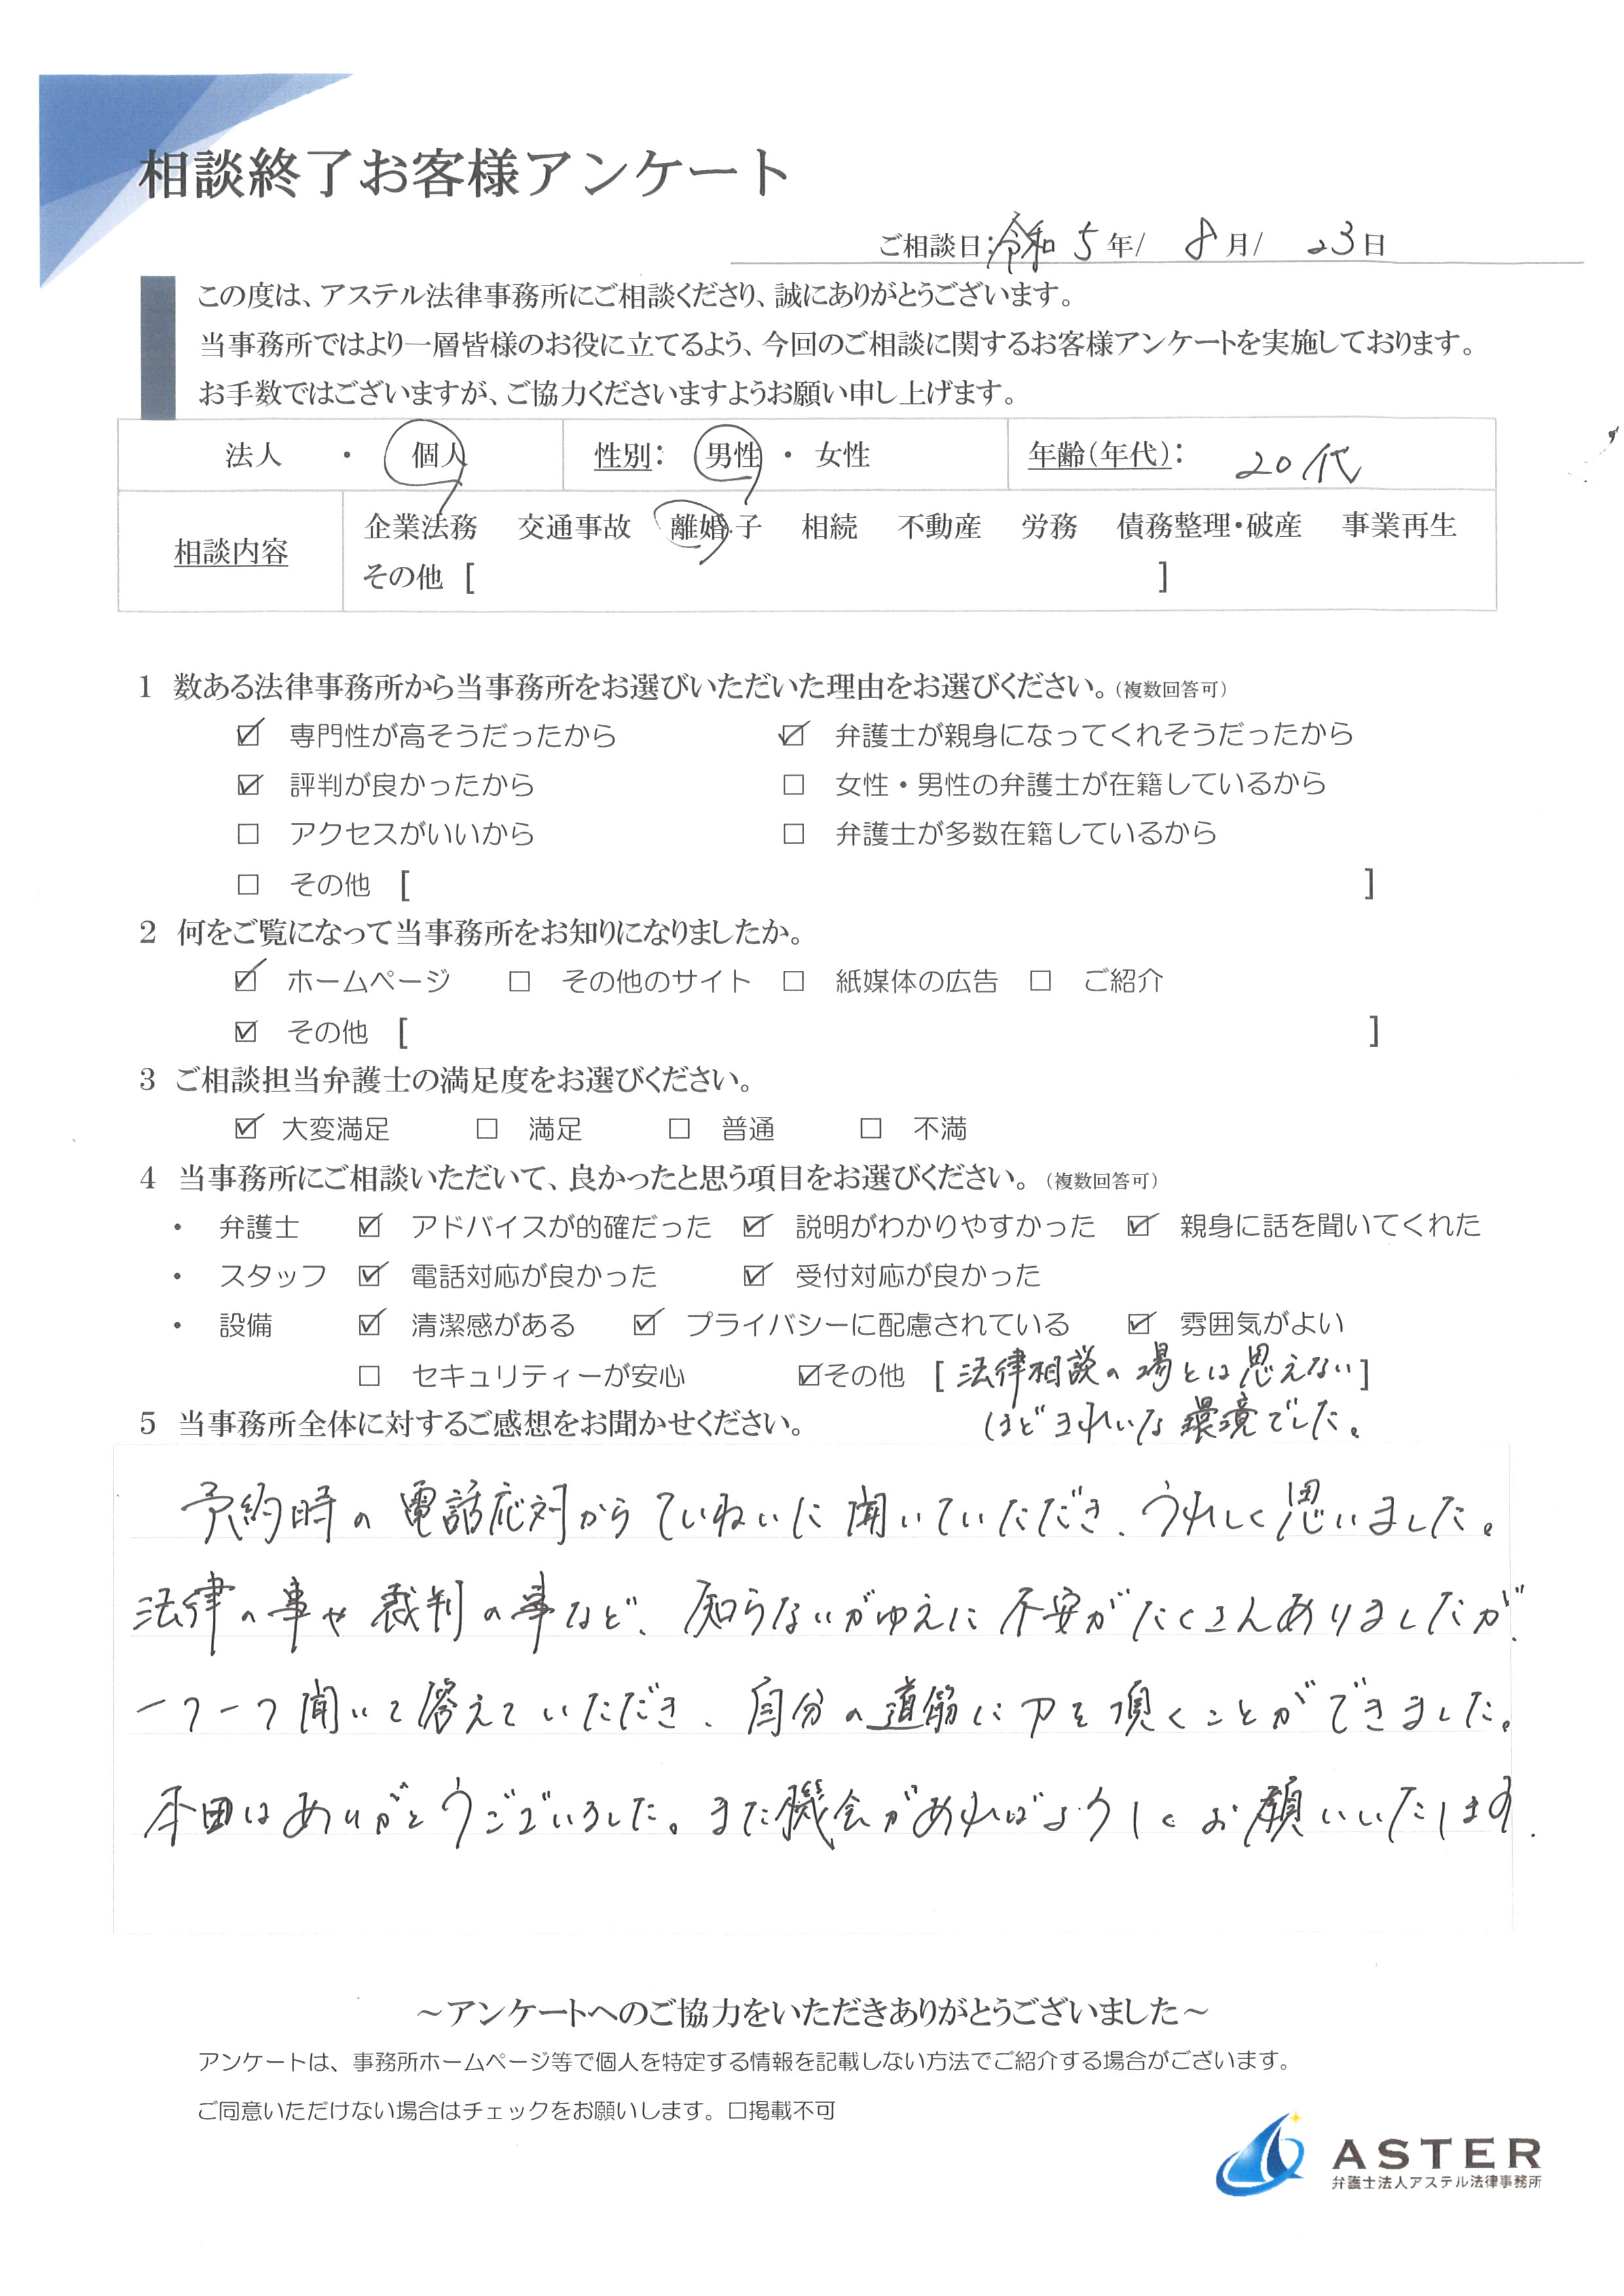 相談終了お客様アンケート
ご相談日:令和5年/ 8月/ 23日
この度は、アステル法律事務所にご相談くださり、誠にありがとうございます。
当事務所ではより一層皆様のお役に立てるよう、今回のご相談に関するお客様アンケートを実施しております。
お手数ではございますが、ご協力くださいますようお願い申し上げます。
法人 ・ 個人 性別: 男性 ・ 女性 年齢(年代): 20代
相談内容 企業法務 交通事故 離婚・子 相続 不動産 労務 債務整理・破産 事業再生
その他 [ ]
1 数ある法律事務所から当事務所をお選びいただいた理由をお選びください。(複数回答可)
☑ 専門性が高そうだったから ☑ 弁護士が親身になってくれそうだったから
☑ 評判が良かったから □ 女性・男性の弁護士が在籍しているから
□ アクセスがいいから □ 弁護士が多数在籍しているから
□ その他 [ ]
2 何をご覧になって当事務所をお知りになりましたか。
☑ ホームページ □ その他のサイト □ 紙媒体の広告 □ ご紹介
☑ その他 [ ]
3 ご相談担当弁護士の満足度をお選びください。
☑ 大変満足 □ 満足 □ 普通 □ 不満
4 当事務所にご相談いただいて、良かったと思う項目をお選びください。(複数回答可)
・ 弁護士 ☑ アドバイスが的確だった ☑ 説明がわかりやすかった ☑ 親身に話を聞いてくれた
・ スタッフ ☑ 電話対応が良かった ☑ 受付対応が良かった
・ 設備 ☑ 清潔感がある ☑ プライバシーに配慮されている ☑ 雰囲気がよい
□ セキュリティーが安心 ☑その他 [法律相談の場とは思えない]
ほどきれいな環境でした。
5 当事務所全体に対するご感想をお聞かせください。
予約時の電話応対からていねいに聞いていただき、うれしく思いました。
法律の事や裁判の事など、知らないがゆえに不安がたくさんありましたが、
一つ一つ聞いて答えていただき、自分の道筋に力を頂くことができました。
本日はありがとうございました。また機会があればよろしくお願いいたします.
～アンケートへのご協力をいただきありがとうございました～
アンケートは、事務所ホームページ等で個人を特定する情報を記載しない方法でご紹介する場合がございます。
ご同意いただけない場合はチェックをお願いします。□掲載不可
ASTER
弁護士法人アステル法律事務所